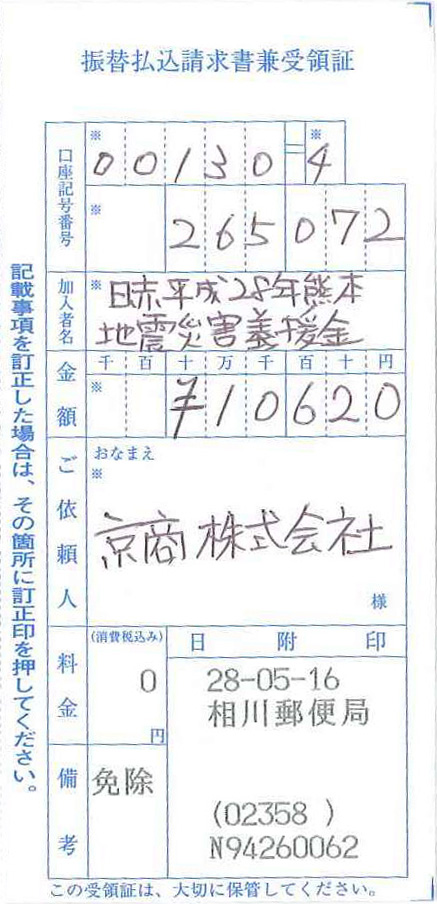 振替払込請求書兼受領証
口座記号番号
※ 00130=※4
※ 265072
加入者名
※ 日赤平成28年熊本
地震災害義援金
金額
千 百 十 万 千 百 十 円
※ ¥10620
ご依頼人
おなまえ
※
京商株式会社
様
料金
(消費税込み)
0
円
備考
免除
日附印
28-05-16
相川郵便局
(02358 )
N94260062
記載事項を訂正した場合は、その箇所に訂正印を押してください。
この受領証は、大切に保管してください。